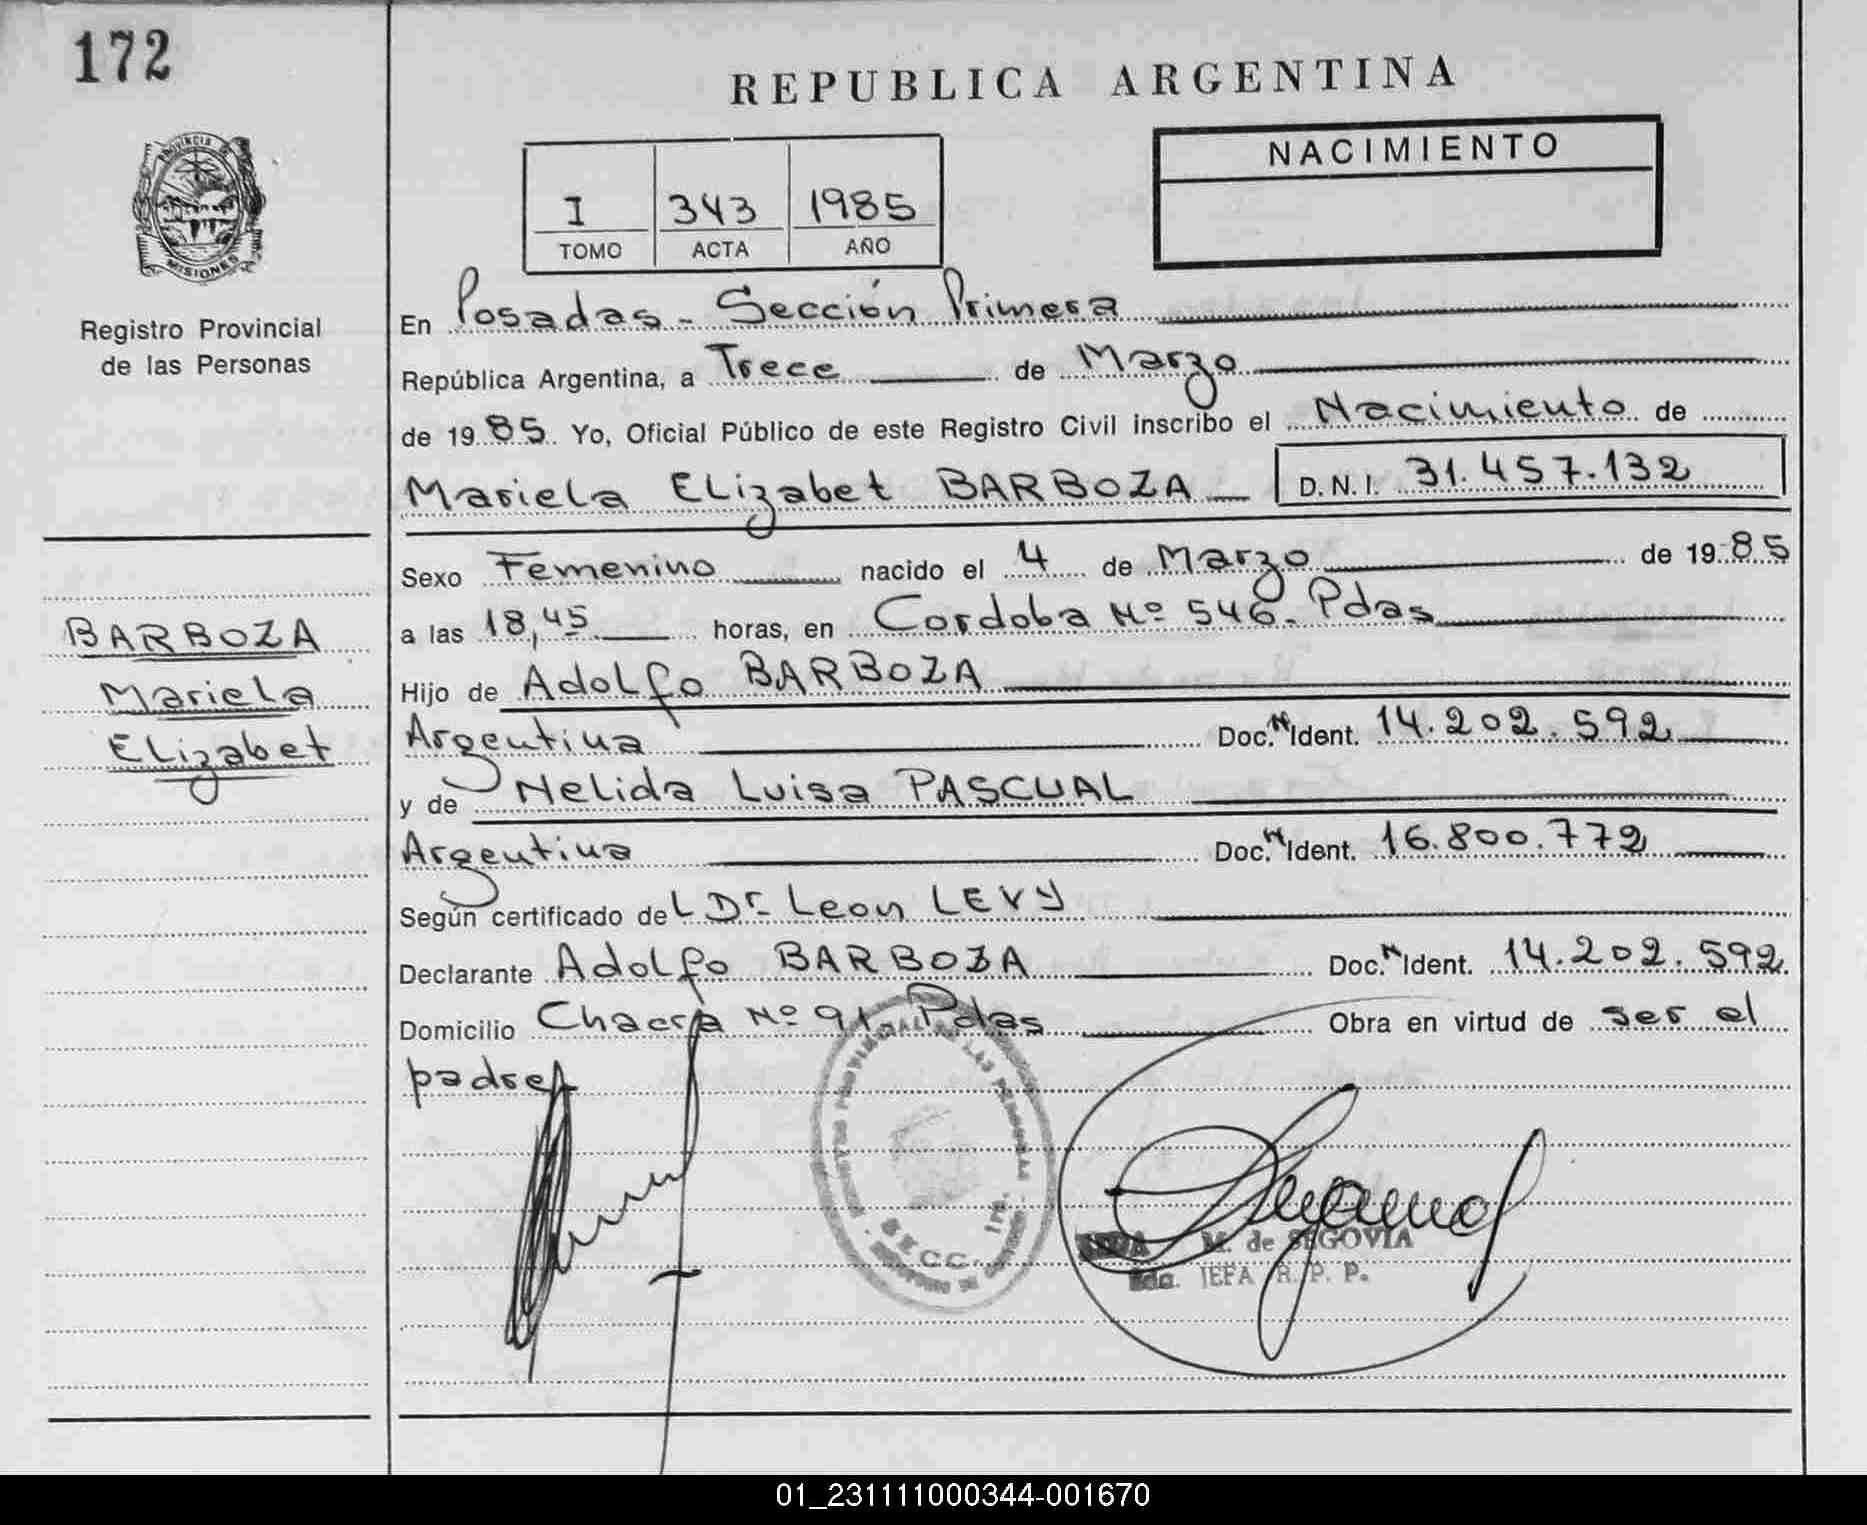 172
REPUBLICA ARGENTINA
PROVINCIA DE
MISIONES
Registro Provincial
de las Personas
I 343 1985
TOMO ACTA AÑO
NACIMIENTO
En Posadas - Sección Primera
República Argentina, a Trece de Marzo
de 1985. Yo, Oficial Público de este Registro Civil inscribo el Nacimiento de
Mariela Elizabet BARBOZA D.N.I. 31.457.132
Sexo Femenino nacido el 4 de Marzo de 1985
a las 18,45 horas, en Cordoba Nº 546. Pdas
Hijo de Adolfo BARBOZA
Argentina Doc. N Ident. 14.202.592
y de Nelida Luisa PASCUAL
Argentina Doc. N Ident. 16.800.772
Según certificado del Dr. Leon LEVY
Declarante Adolfo BARBOZA Doc. N Ident. 14.202.592
Domicilio Chacra Nº 91. Pdas Obra en virtud de ser el
padre
BARBOZA
Mariela
Elizabet
SECC. 1ra.
M. de SEGOVIA
JEFA R. P. P.
01_231111000344-001670